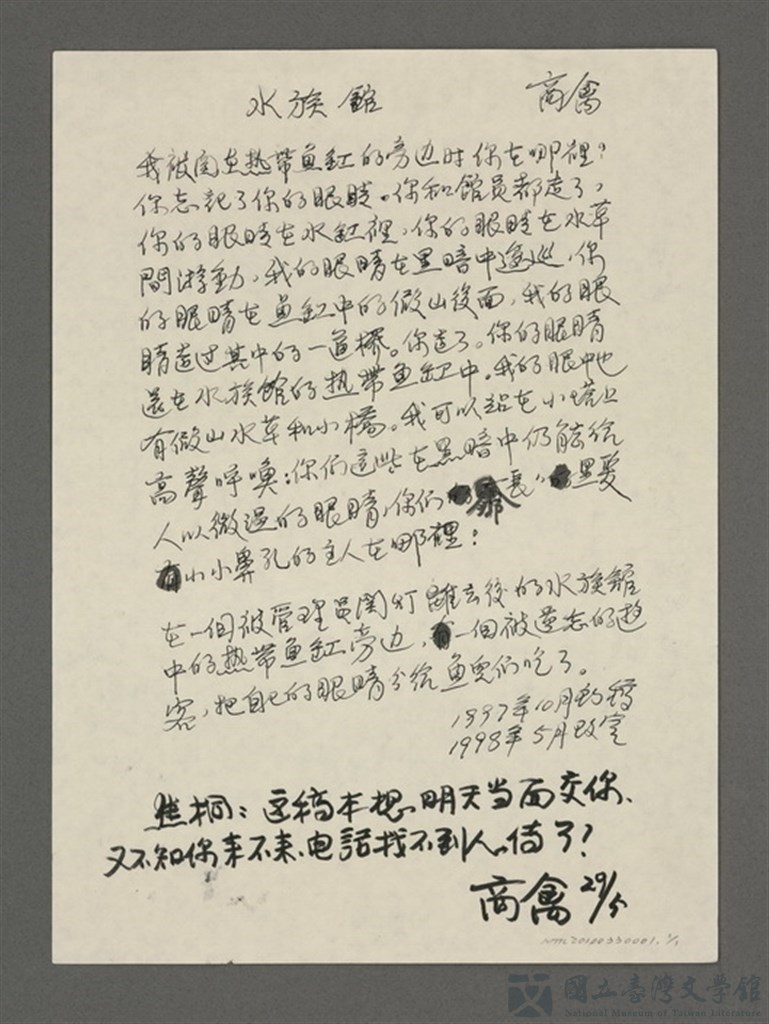 水族館 商禽
我被関在热带鱼缸的旁边时你在哪裡?
你忘記了你的眼睛。你和館員都走了,
你的眼睛在水缸裡,你的眼睛在水草
間游動,我的眼睛在黑暗中逡巡,你
的眼睛在鱼缸中的假山後面,我的眼
睛走过其中的一道橋。你走了。你的眼睛
還在水族館的热带鱼缸中。我的眼中也
有假山水草和小橋。我可以站在小塔上
高聲呼喚:你們這些在黑暗中仍能給
人以微温的眼睛,你們
小小鼻孔的主人在哪裡?
在一個被管理員関灯離去後的水族館
中的热带鱼缸旁边,一個被遺忘的遊
客,把自己的眼睛分給鱼兒們吃了。
1997年10月初稿
1998年5月改定
焦桐:这稿本想明天当面交你、
又不知你来不来、电話找不到人。
商禽 29/5
NMTL20100330001. 1/1
國立臺灣文學館
National Museum of Taiwan Literature